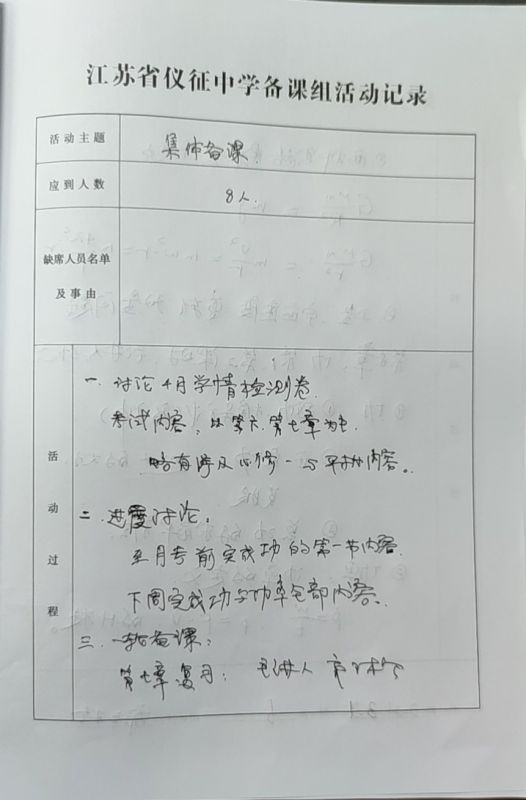 江苏省仪征中学备课组活动记录
活动主题 集体备课
应到人数 8人.
缺席人员名单
及事由
活动过程
一. 讨论4月学情检测卷.
考试内容: 以第六.第七章为主.
略有涉及必修一与平抛内容。
二. 进度讨论:
至月考前完成功的第一节内容.
下周完成功与功率全部内容.
三. 一轮备课:
第七章复习: 主讲人